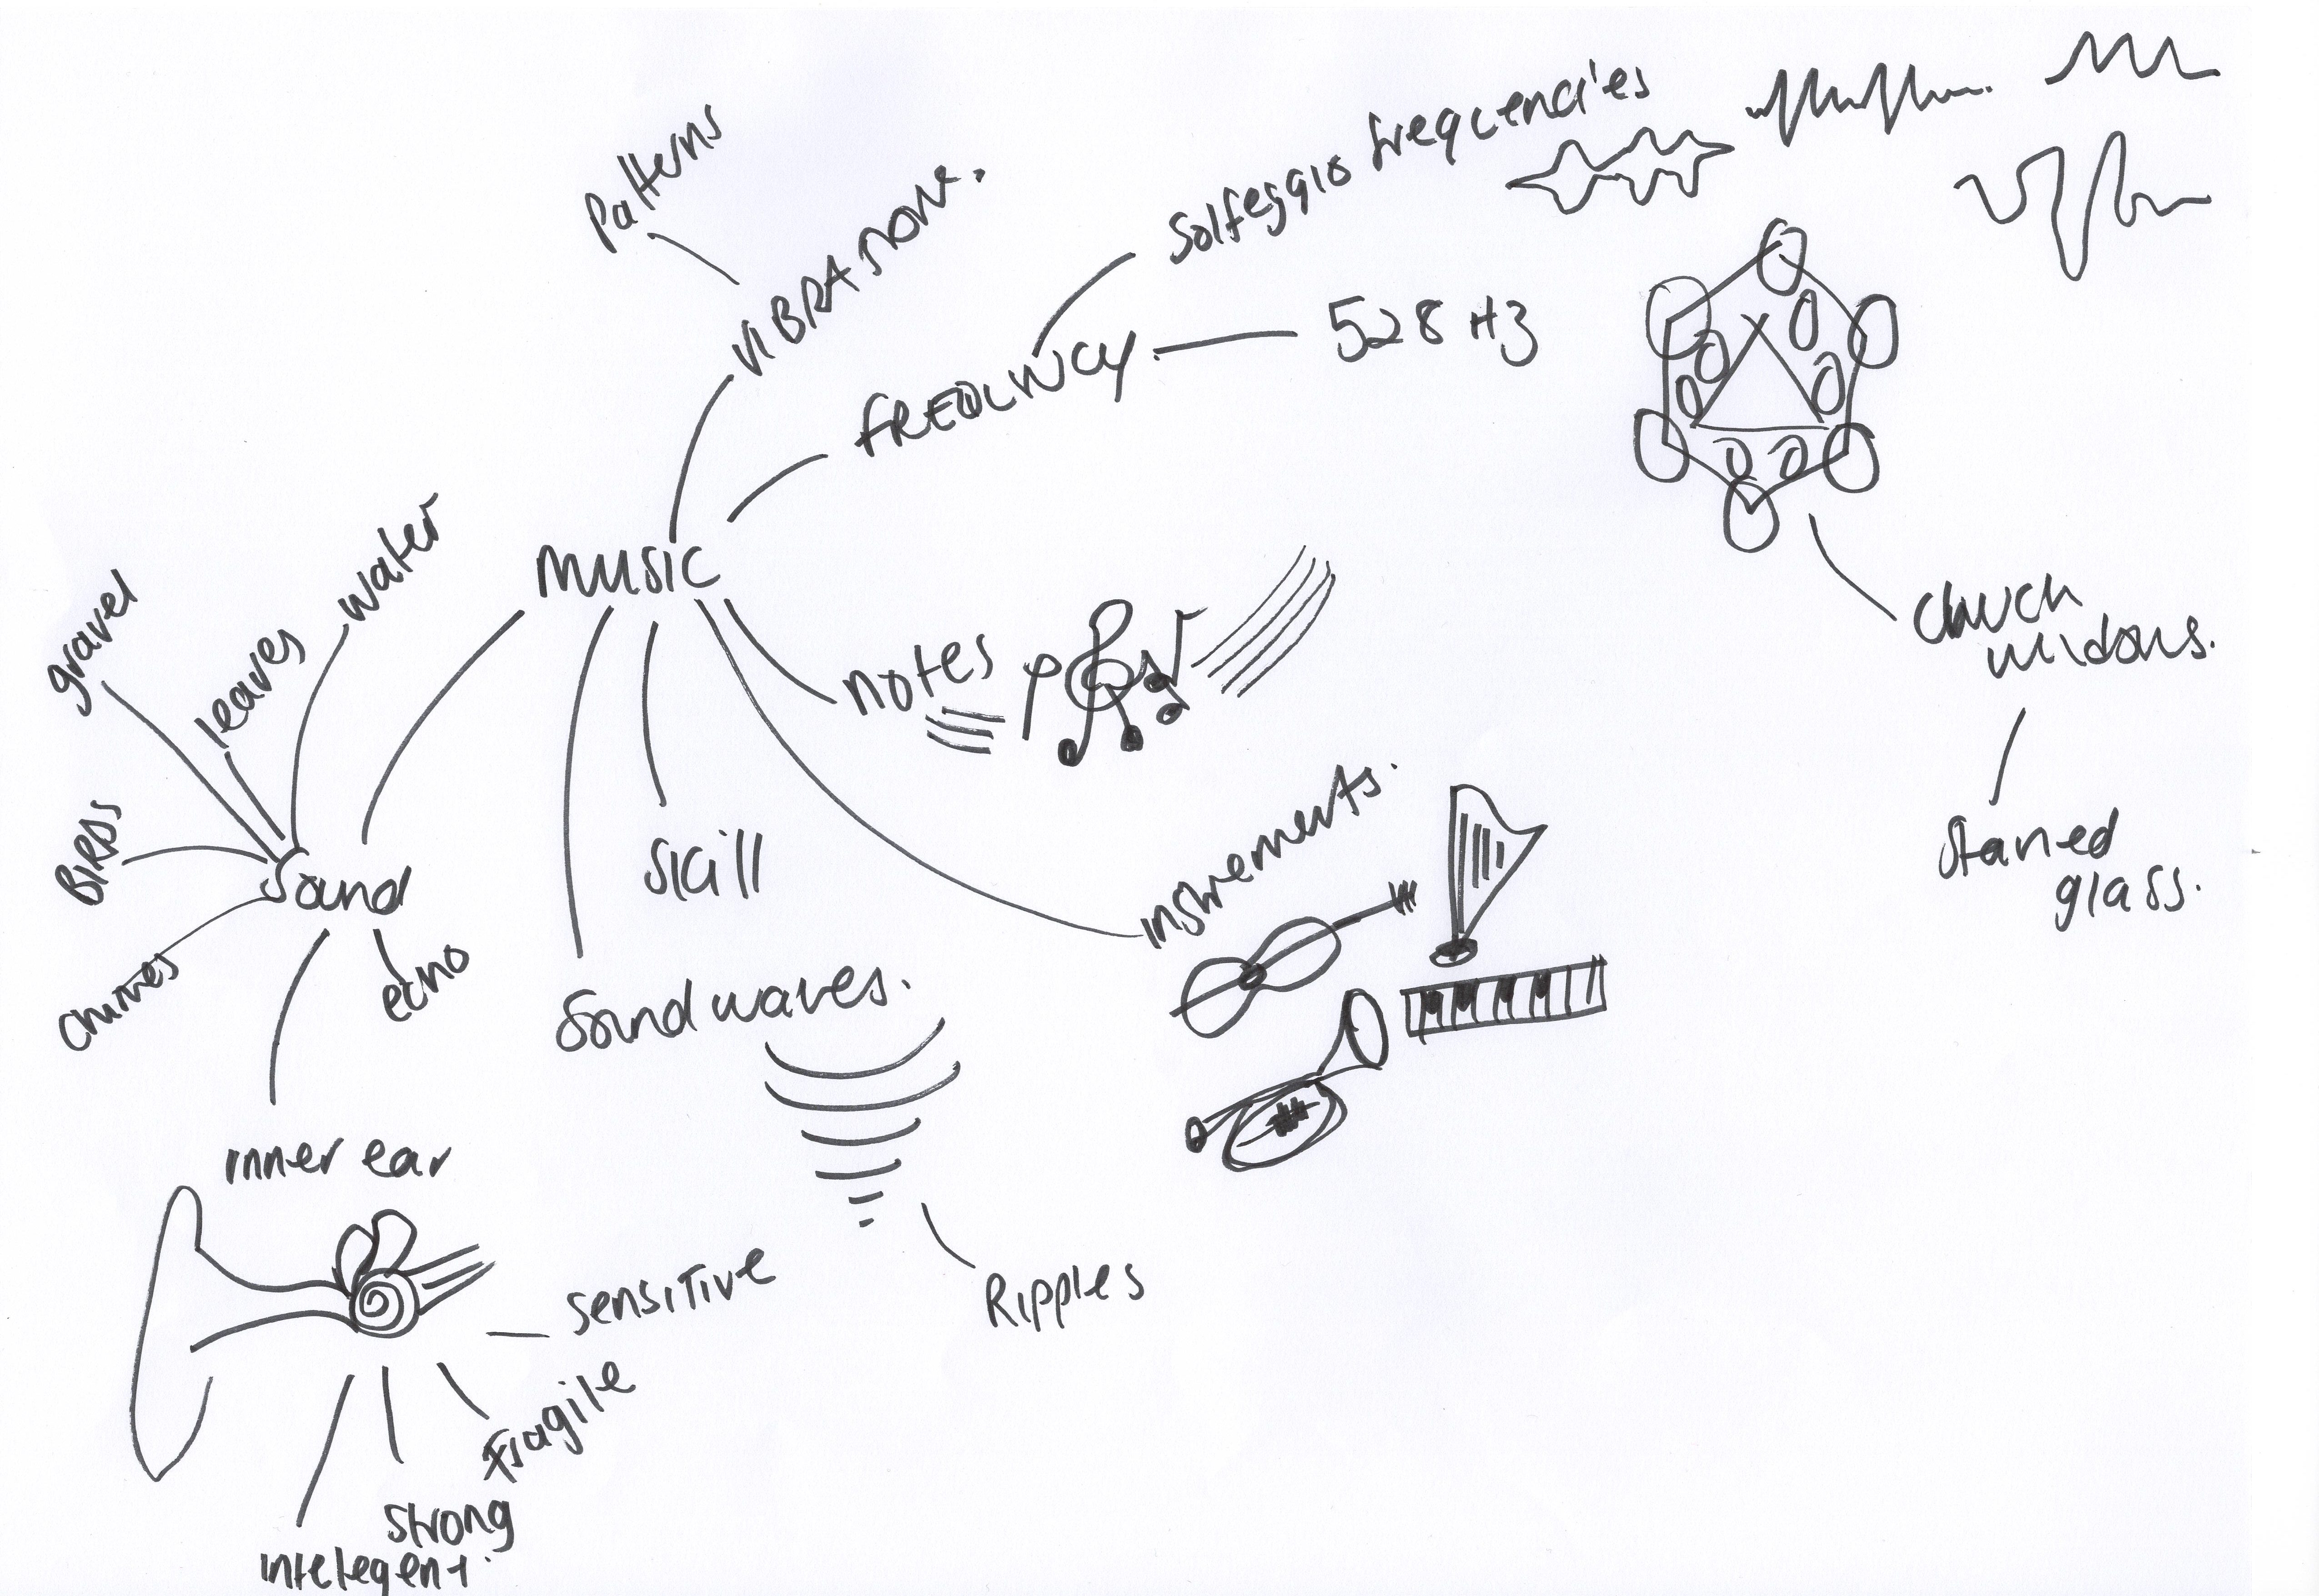 Patterns
VIBRATION.
Solfeggio frequencies
FREQUENCY.
528 Hz
music
water
gravel
leaves
notes
Church
windows.
Stained
glass.
BIRDS
Sound
Skill
instrements.
chimes
echo
Sound waves.
inner ear
sensitive
Ripples
Fragile
Strong
intelegent.